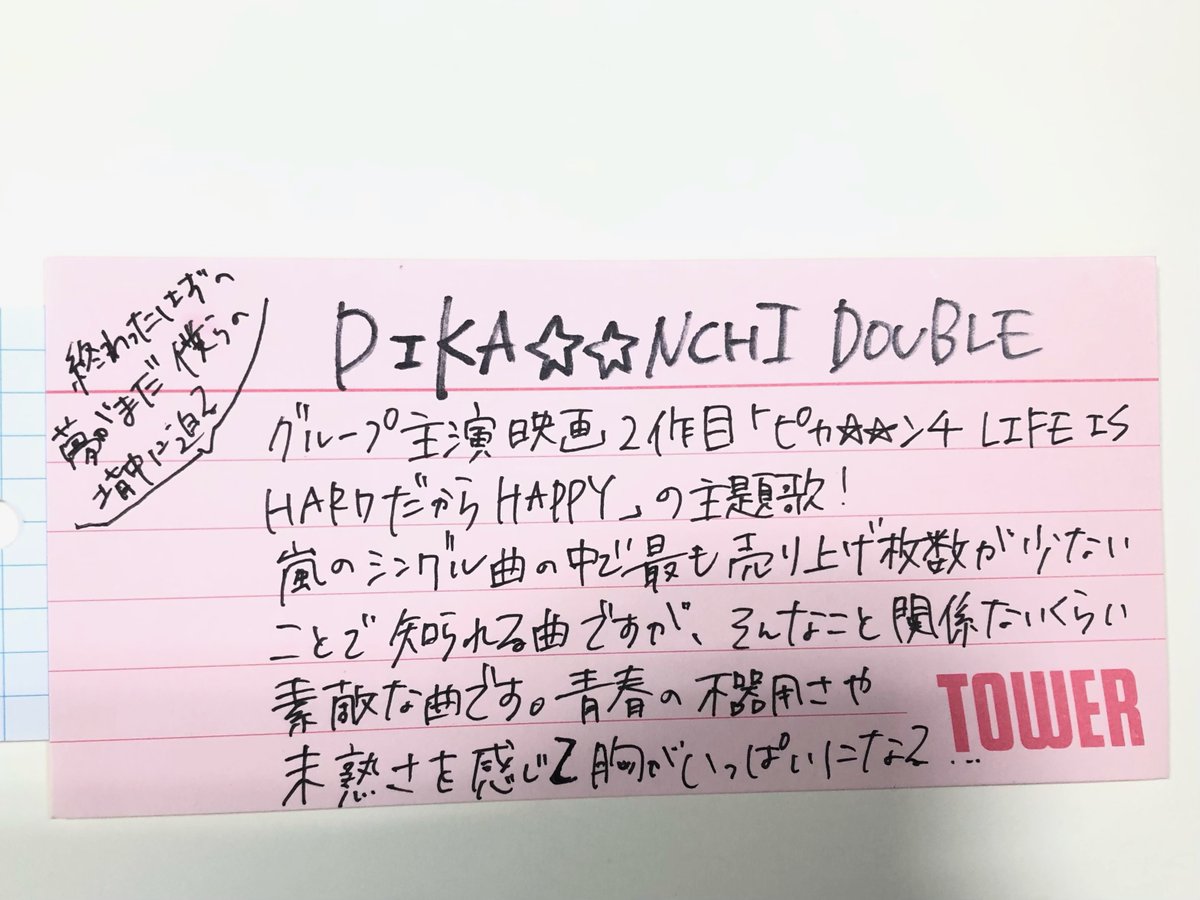 終わったはずの
夢がまだ 僕らの
背中に迫る
PIKA☆☆NCHI DOUBLE
グループ主演映画2作目「ピカ☆☆ンチ LIFE IS
HARDだから HAPPY」の主題歌!
嵐のシングル曲の中で最も売り上げ枚数が少ない
ことで知られる曲ですが、そんなこと関係ないくらい
素敵な曲です。青春の不器用さや
未熟さを感じて胸がいっぱいになる...
TOWER